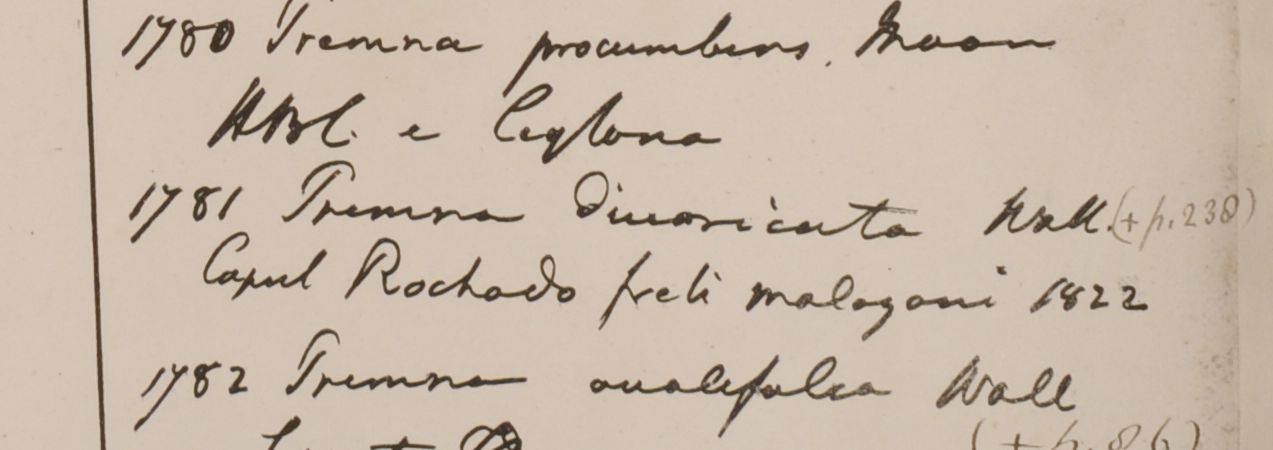 1780 Premna procumbens. Moon
HBC. e Ceylona
1781 Premna divaricata Wall. (+ p. 238)
Caput Rochado freti malayani 1822
1782 Premna ovalifolia Wall
(+ p. 86)